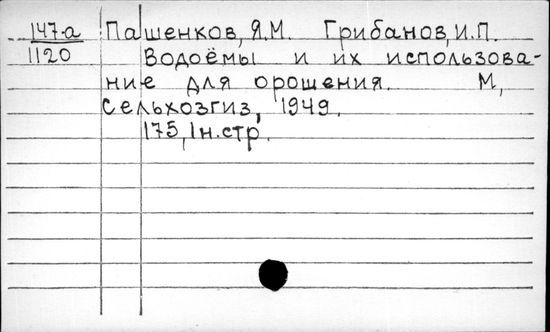 147а Пашенков, Я.М. Грибанов, И.П.
1120 Водоёмы и их использова-
ние для орошения. М,
Сельхозгиз, 1949.
175, 1н.стр.